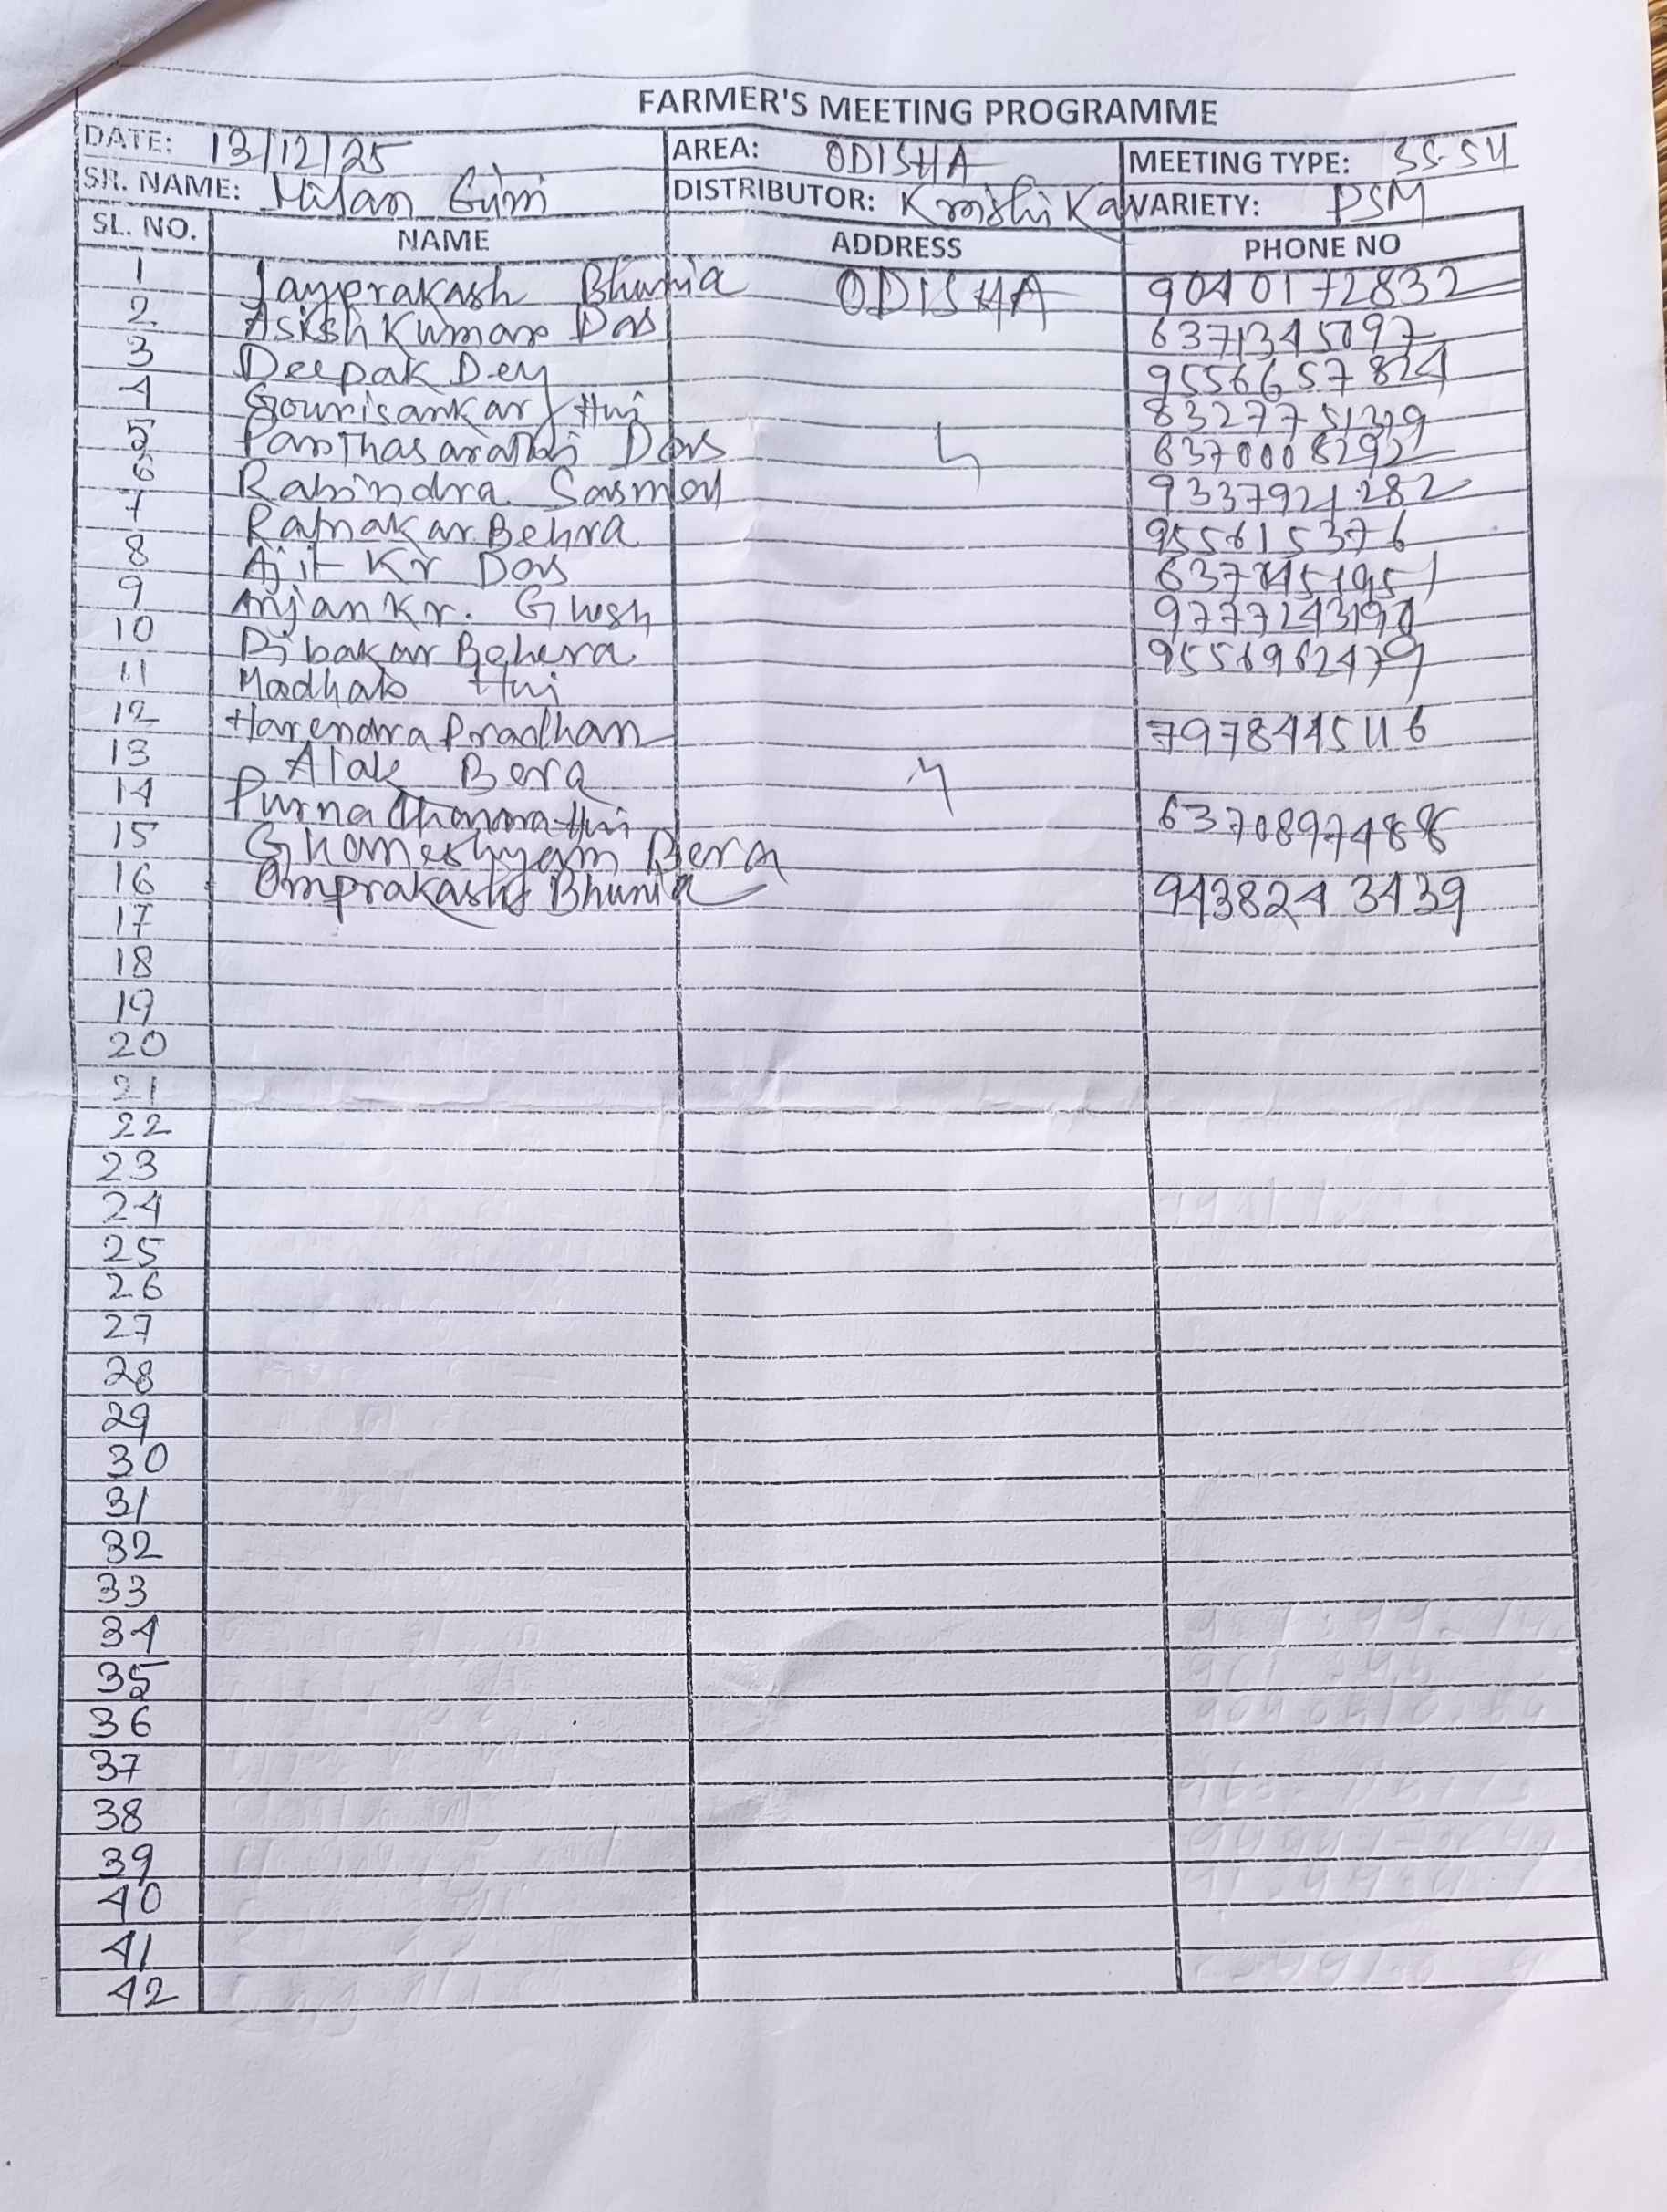 FARMER'S MEETING PROGRAMME
DATE: 13/12/25 AREA: ODISHA MEETING TYPE:
SR. NAME: Milan Giri DISTRIBUTOR: Krishi Ka VARIETY: PSM
SL. NO. NAME ADDRESS PHONE NO
1 Jayprakash Bhunia ODISHA 9040172832
2 Asish Kumar Das 6371345097
3 Deepak Dey 9556657824
4 Gourisankar Hui
5 Parthasarathi Das 6370008292
6 Rabindra Sasmal 9337921282
7 Ratnakar Behra 955615376
8 Ajit Kr Das
9 Anjan Kr. Ghosh
10 Dibakar Behera 9556962479
11 Madhab Hui
12 Harendra Pradhan 7978445116
13 Alak Bera
14 Purna Hui
15 Ghaneshyam Bera
16 Omprakash Bhunia 9438243439
17
18
19
20
21
22
23
24
25
26
27
28
29
30
31
32
33
34
35
36
37
38
39
40
41
42